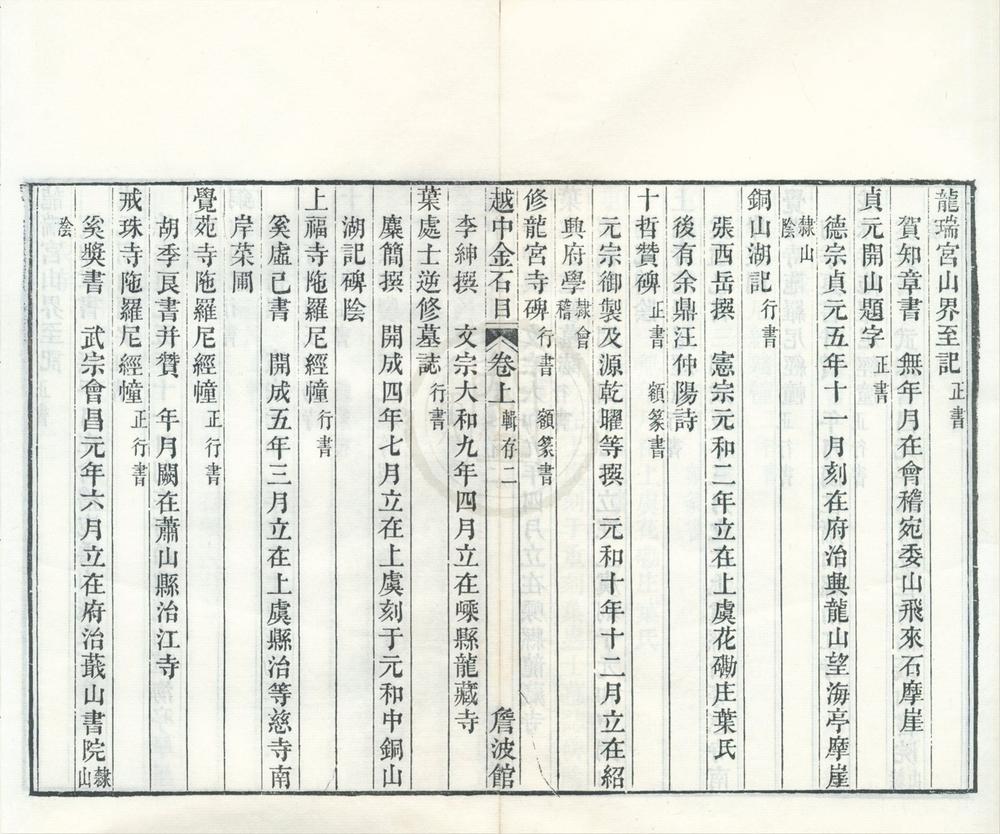 龍瑞宮山界至記正書
賀知章書　無年月在會稽宛委山飛來石摩崖
貞元開山題字正書
德宗貞元五年十一月刻在府治興龍山望海亭摩崖
隸山陰
銅山湖記行書
張西岳撰　憲宗元和二年立在上虞花磡庄葉氏
後有余鼎汪仲陽詩
十哲贊碑正書　額篆書
元宗御製及源乾曜等撰　立元和十年十二月立在紹
興府學隸會稽
修龍宮寺碑行書　額篆書
越中金石目　卷上輯存二　詹波館
李紳撰　文宗大和九年四月立在嵊縣龍藏寺
葉處士逆修墓誌行書
麋簡撰　開成四年七月立在上虞刻于元和中銅山
湖記碑陰
上福寺陁羅尼經幢行書
奚虛己書　開成五年三月立在上虞縣治等慈寺南
岸菜圃
覺苑寺陁羅尼經幢正行書
胡季良書并贊　年月闕在蕭山縣治江寺
戒珠寺陁羅尼經幢正行書
奚獎書　武宗會昌元年六月立在府治蕺山書院隸山
陰